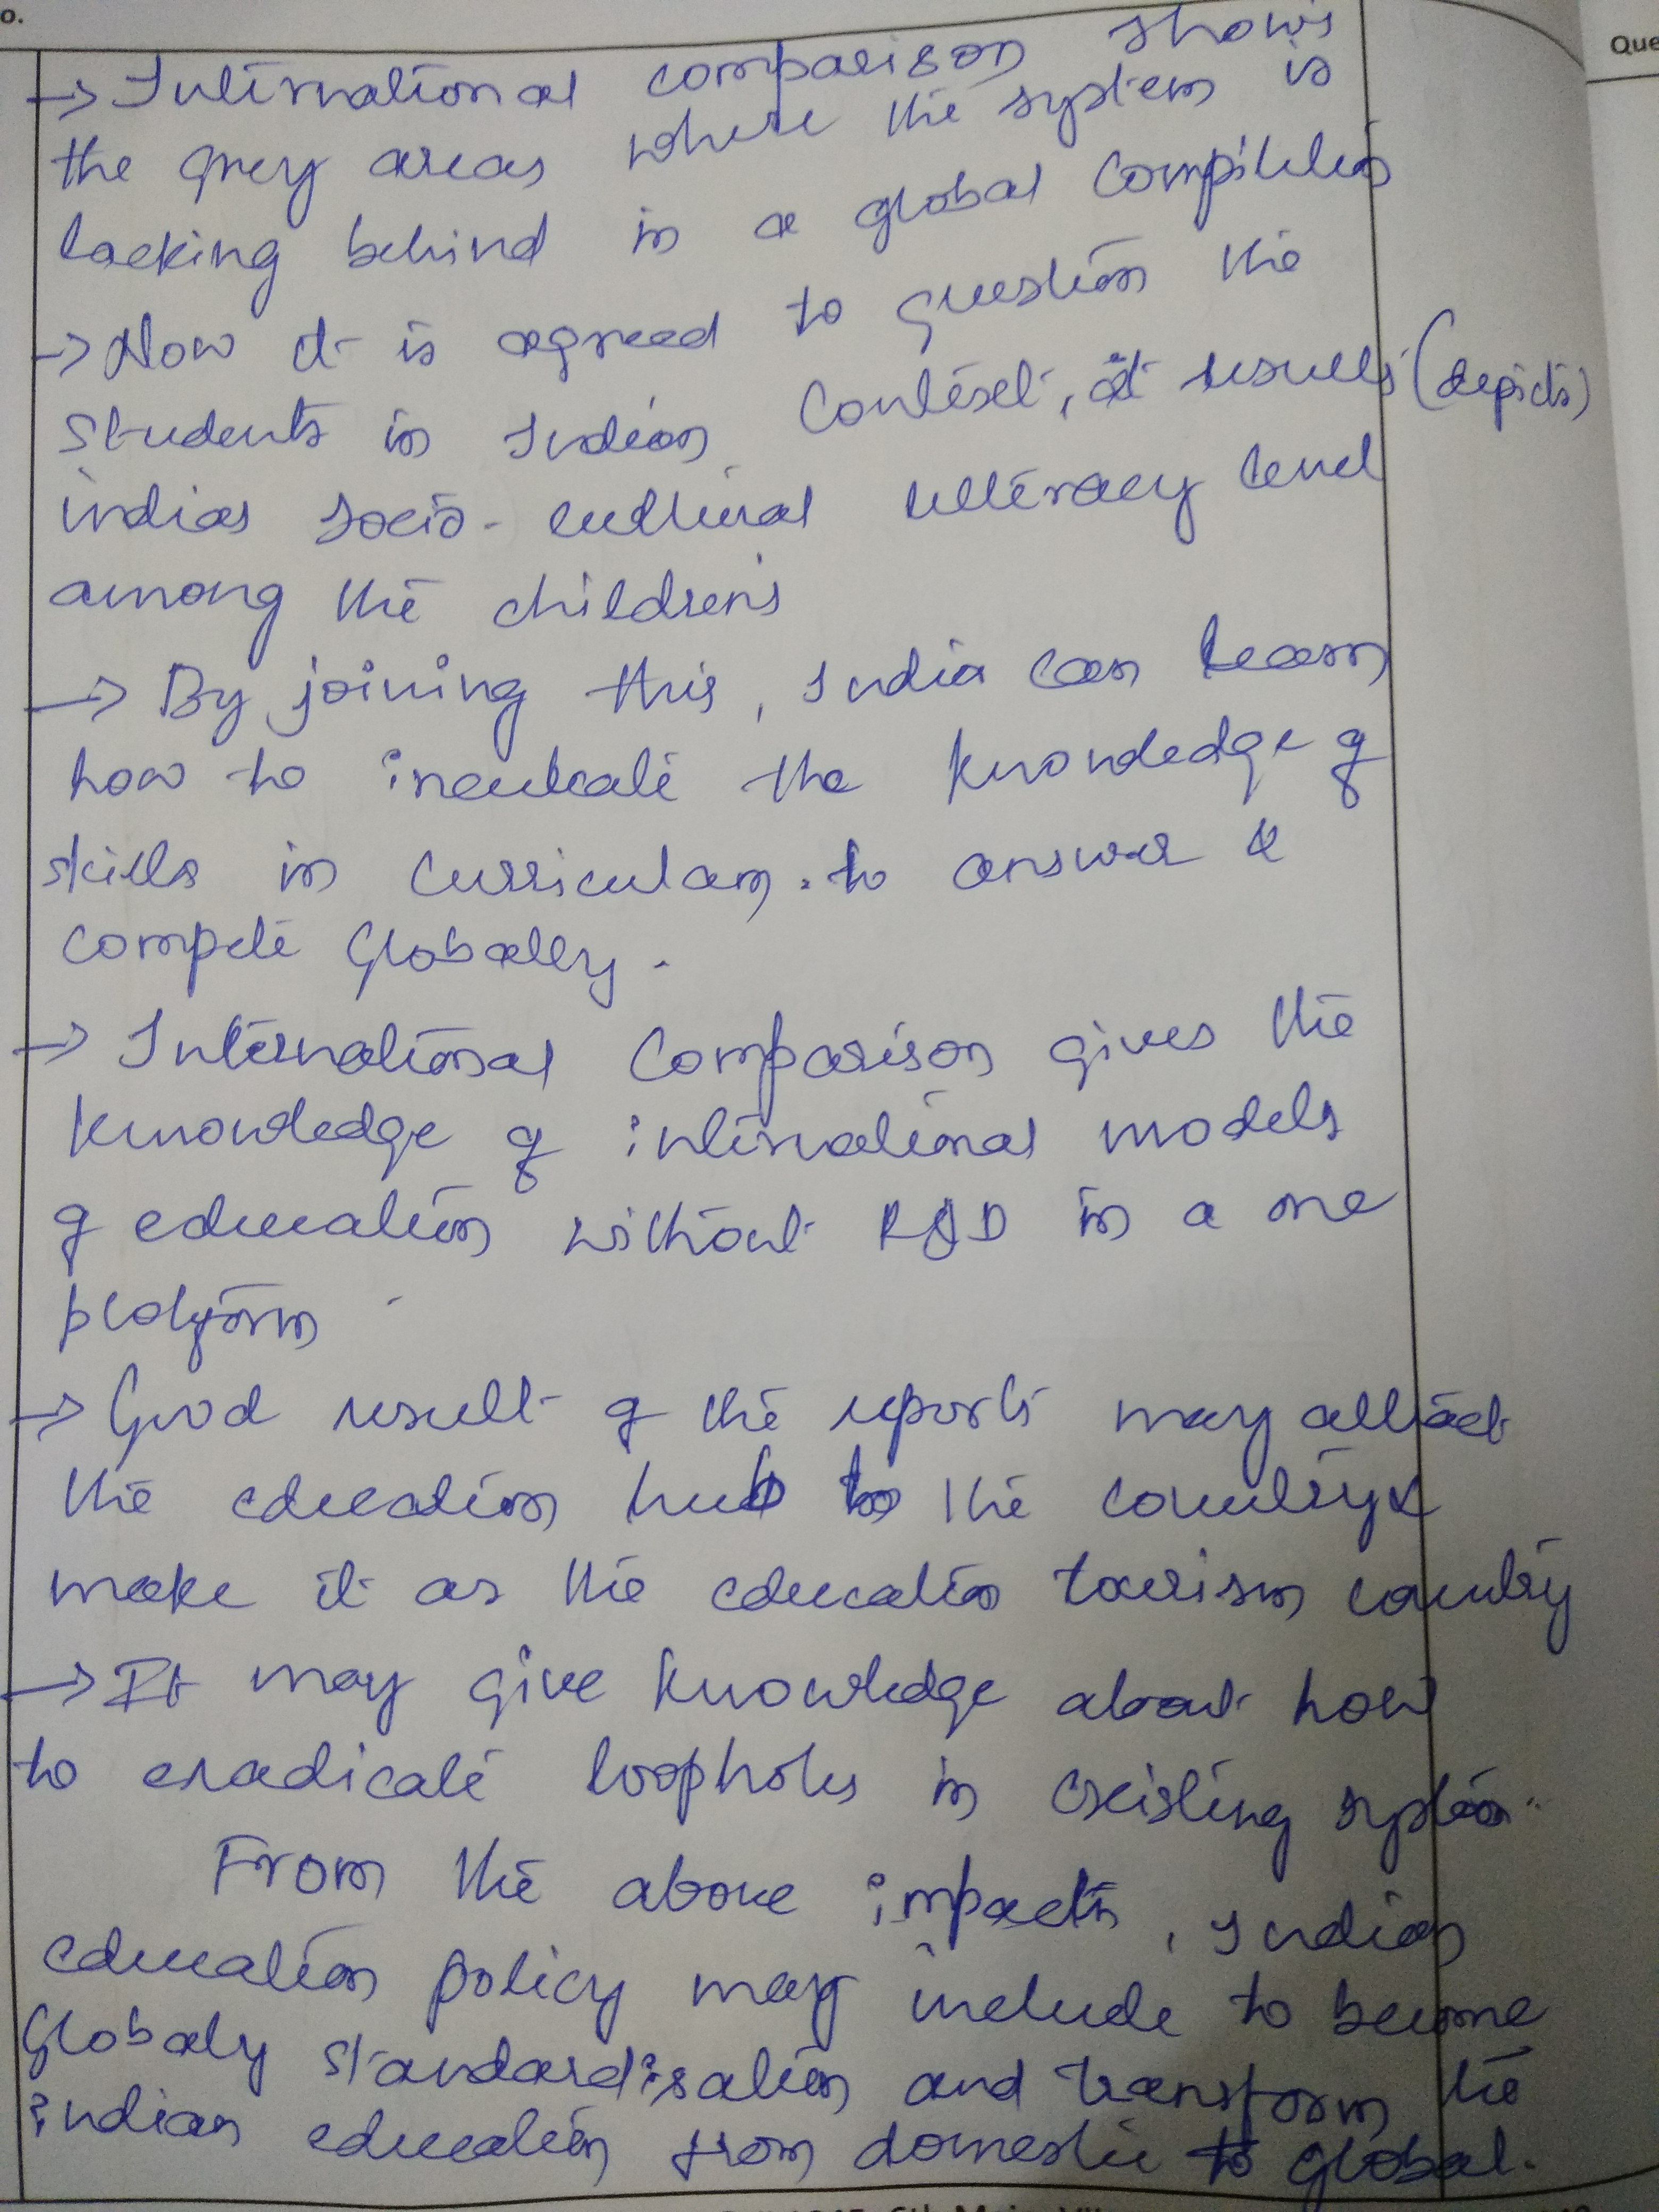 o.
Que
→ International comparison shows
the grey areas where the system is
lacking behind in a global competition
→ Now it is agreed to question the
students in Indian context, it results (depicts)
indias socio-cultural litteracy level
among the childrens
→ By joining this, India can learn
how to inculcate the knowledge of
skills in curriculam. to answer &
compete Globally.
→ International Comparison gives the
knowledge of international models
of education without R&D in a one
platform
→ Good result of the reports may attract
the education hub to the country &
make it as the education tourism country
→ It may give knowledge about how
to eradicate loopholes in existing system.
From the above impacts, Indian
education policy may include to become
Globaly standardisation and transform the
indian education from domestic to global.